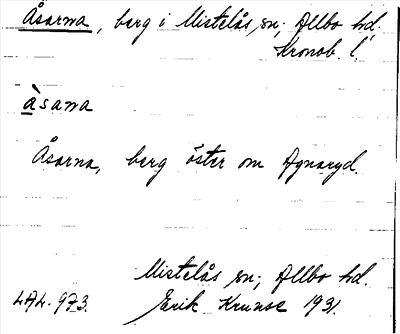 Åsarna, berg i Mistelås sn; Allbo hd.
Kronob. l.
àsaṇa
Åsarna, berg öster om Agnaryd.
Mistelås sn; Allbo hd.
LAL. 973. Erik Krunse 1931.